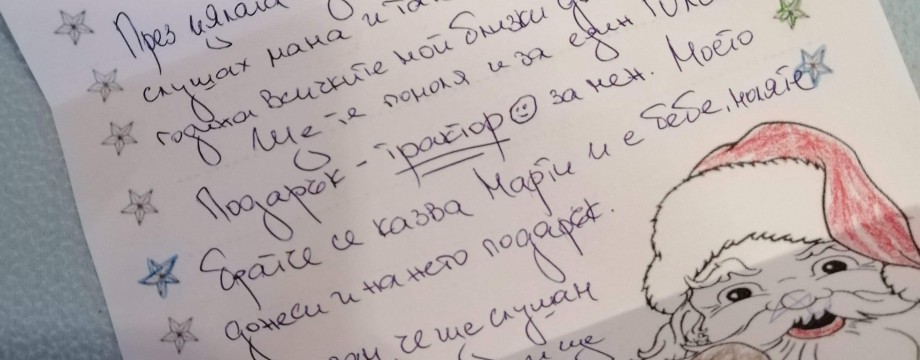 През цялата
слушах мама и та
година всичките мой близки
Ще те помоля и за един голя
Подарък - трактор за мен. Моето
братче се казва Мартин и е бебе, моля те
донеси и на него подарък.
че ще слушам
ще